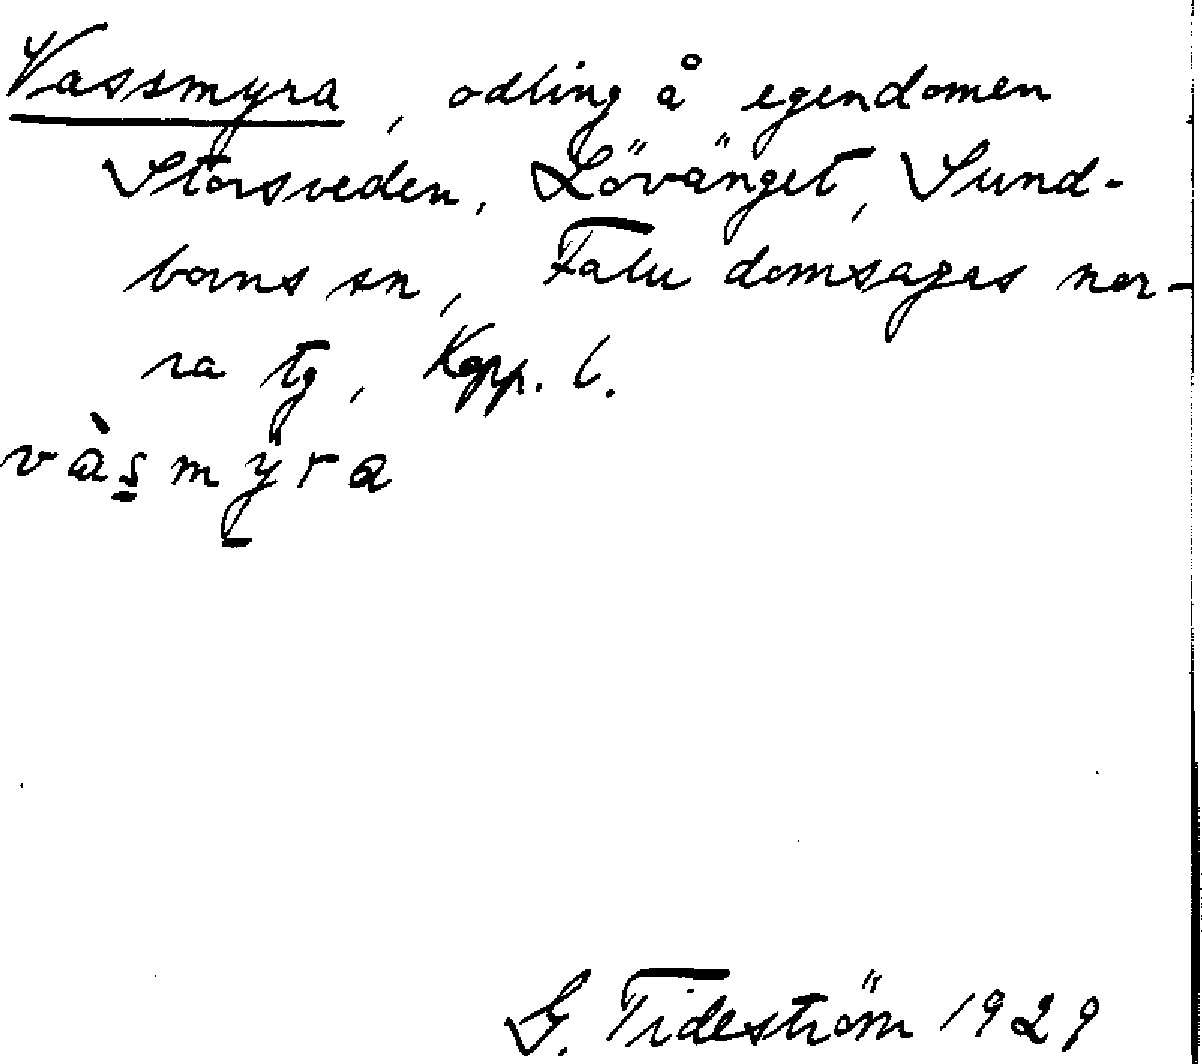 Vassmyra, odling å egendomen
Storsveden, Lövänget, Sund-
borns sn, Falu domsagas nor-
ra tg, Kopp. l.
vàs̠mÿ̠ra
G. Tideström 1929